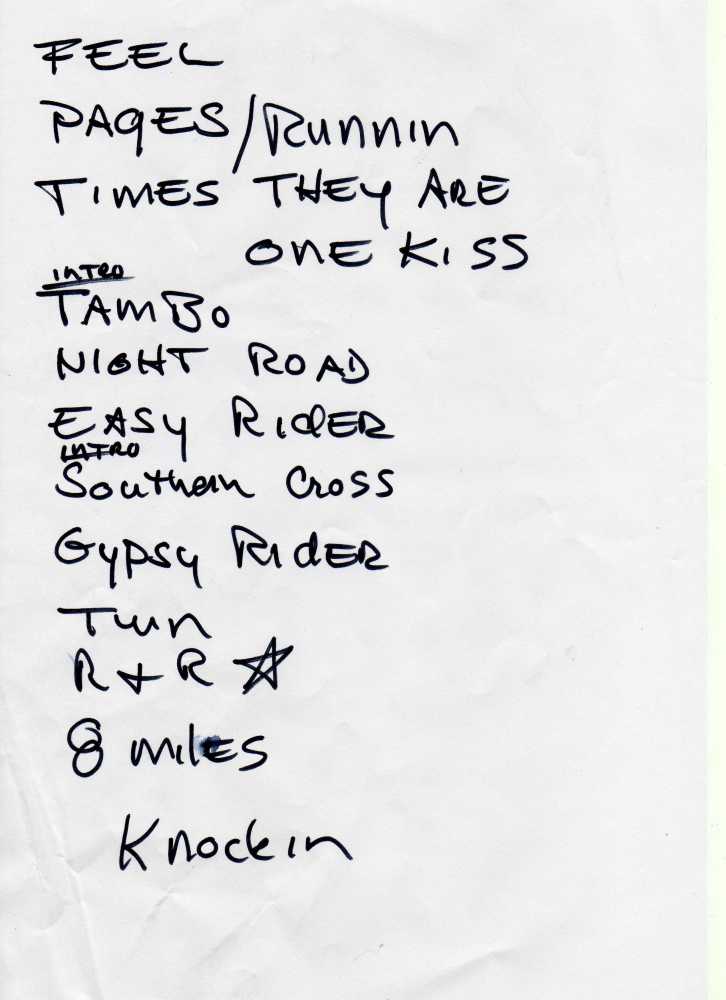 FEEL
PAGES/RUNNIN
TIMES THEY ARE
ONE KISS
INTRO
TAMBO
NIGHT ROAD
EASY RIDER
INTRO
Southern Cross
Gypsy RIDER
Turn
R + R ☆
8 miles
Knockin